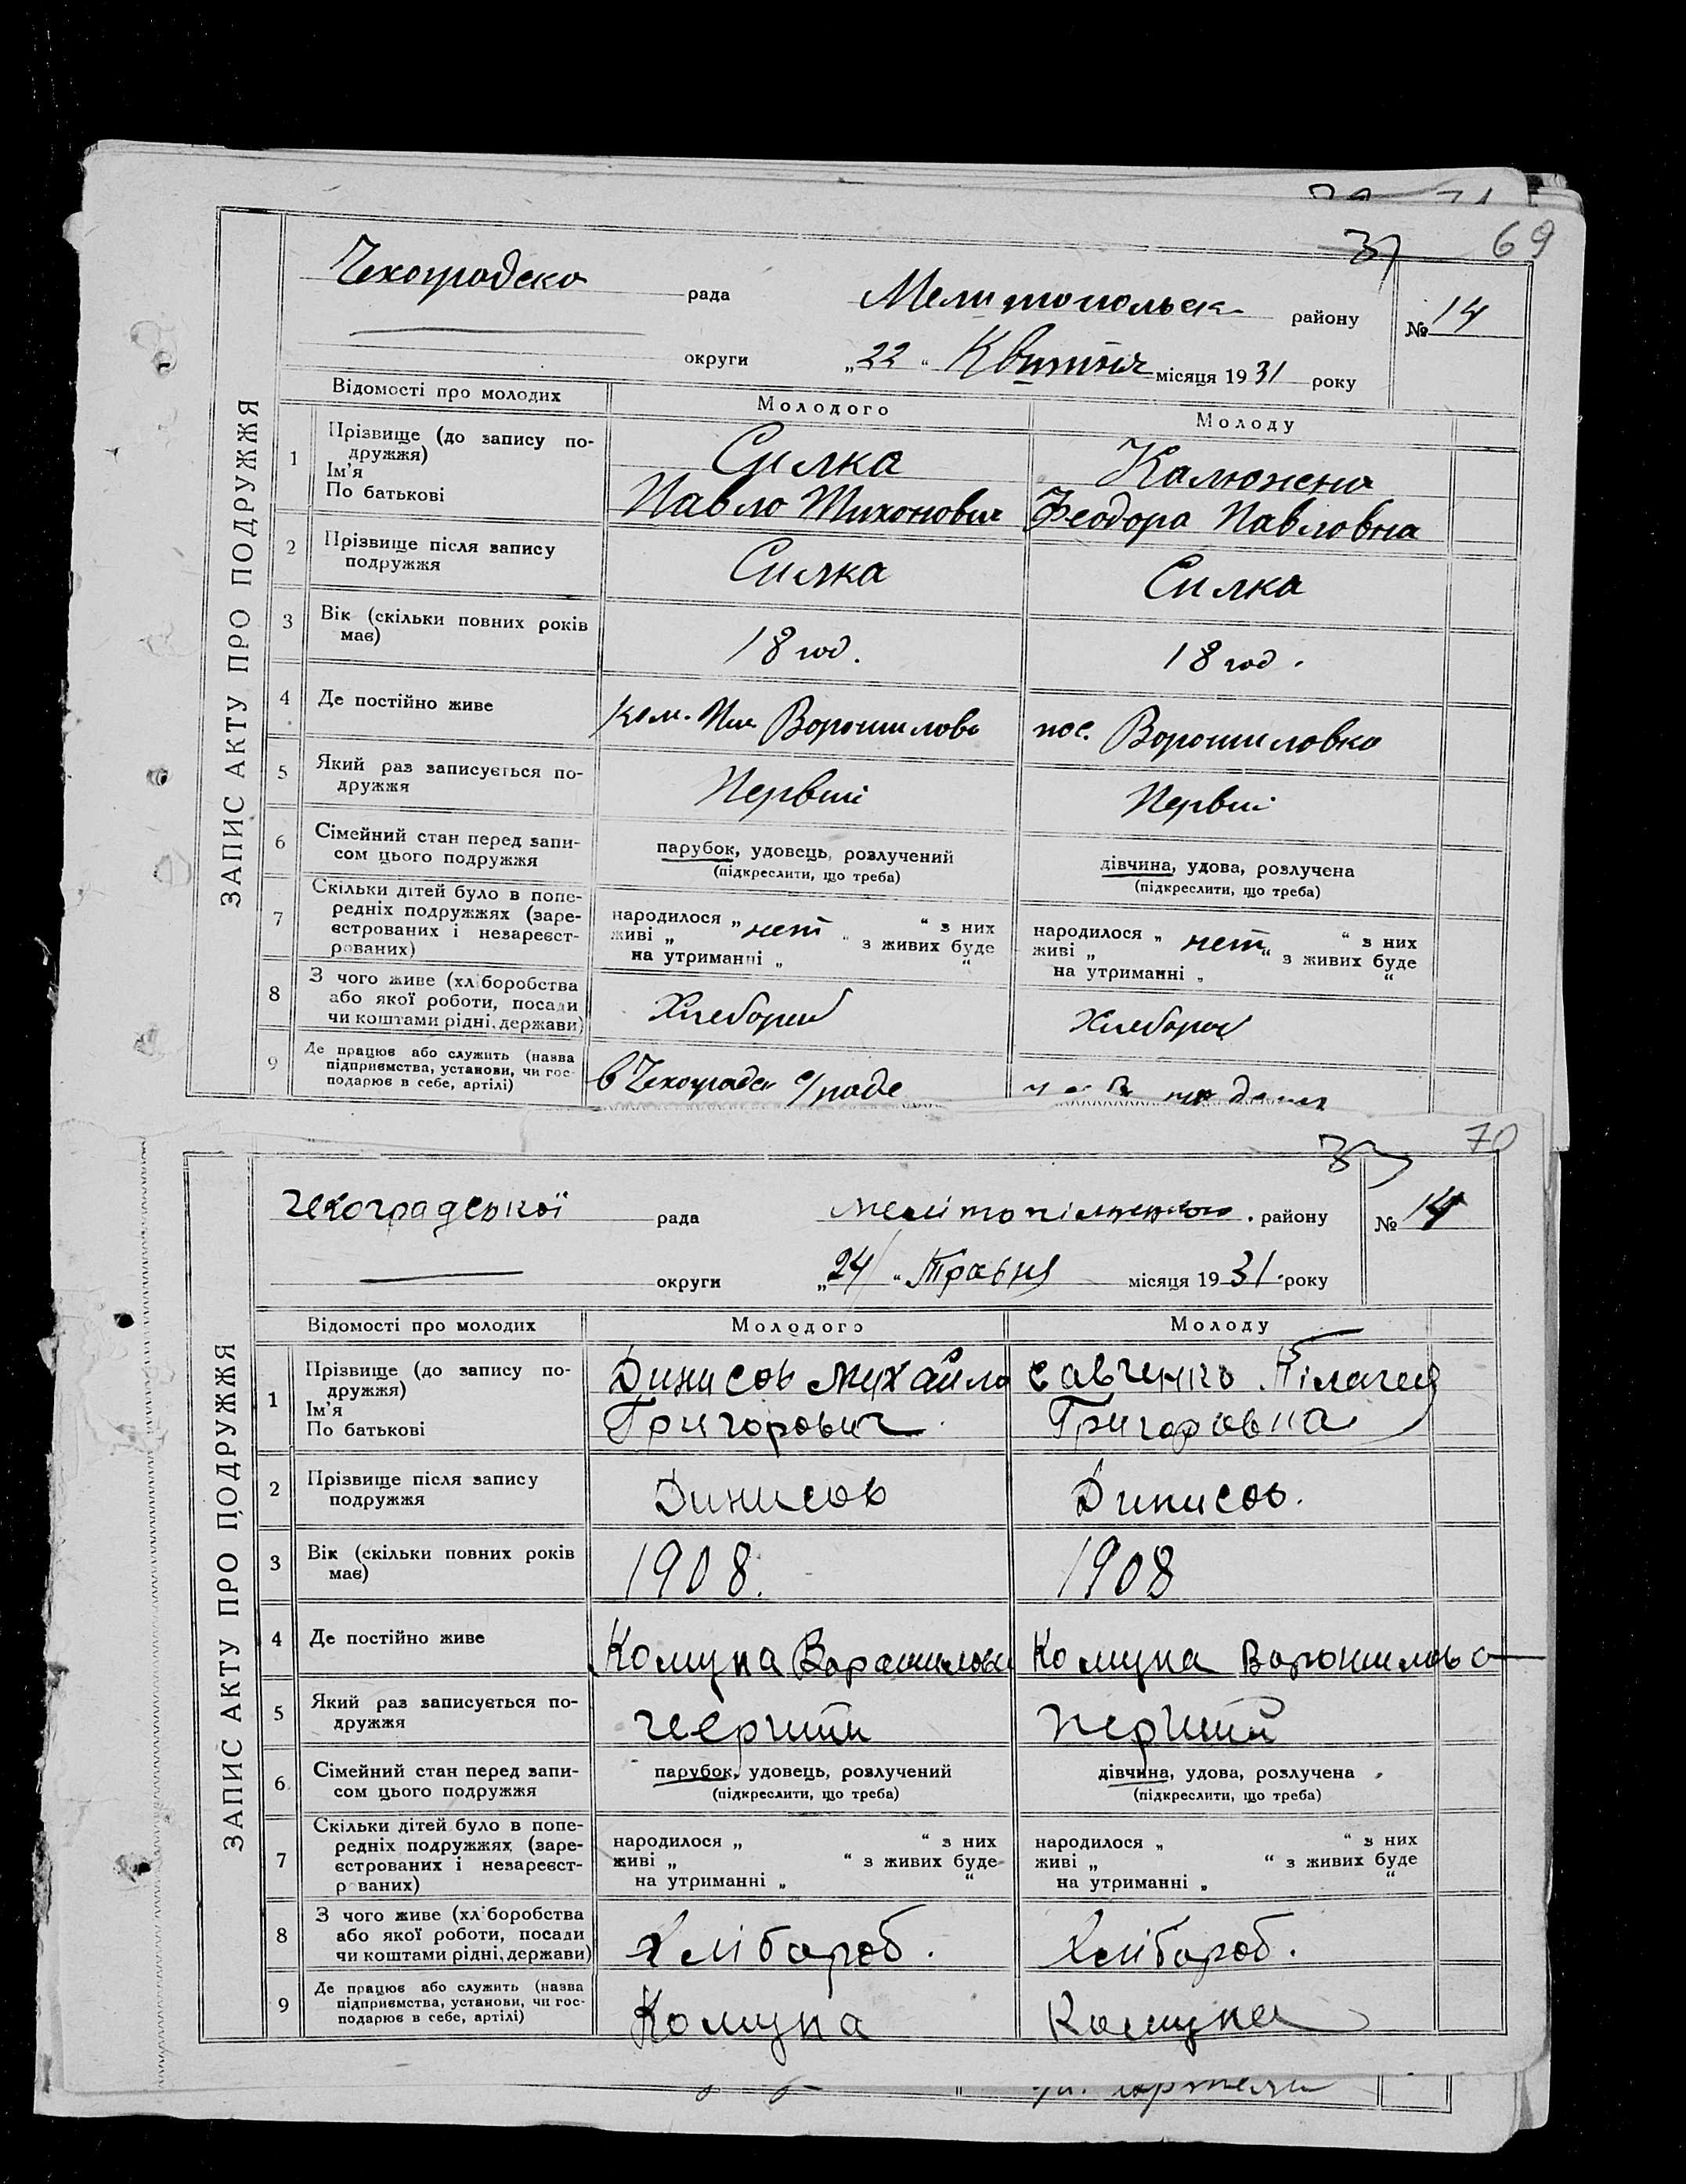 69
37
Чехоградско рада Мелитопольск району № 14
округи „22“ Квитня місяця 1931 року
ЗАПИС АКТУ ПРО ПОДРУЖЖЯ
Відомості про молодих Молодого Молоду
1 Прізвище (до запису по-
дружжя)
Ім'я
По батькові
Силка
Павло Тихонович
Феодора Павловна
2 Прізвище після запису
подружжя
Силка Силка
3 Вік (скільки повних років
має)
18 год. 18 год.
4 Де постійно живе
ком. Им Ворошилова пос. Ворошиловка
5 Який раз записується по-
дружжя
Первий Первий
6 Сімейний стан перед запи-
сом цього подружжя
парубок, удовець, розлучений
(підкреслити, що треба)
дівчина, удова, розлучена
(підкреслити, що треба)
7 Скільки дітей було в попе-
редніх подружжях (заре-
єстрованих і незареєст-
рованих)
народилося „ нет “ з них
живі „ “ з живих буде
на утриманні „ “
народилося „ нет “ з них
живі „ “ з живих буде
на утриманні „ “
8 З чого живе (хліборобства
або якої роботи, посади
чи коштами рідні, держави)
9 Де працює або служить (назва
підприємства, установи, чи гос-
подарює в себе, артілі)
в Чехоград с/раде
70
Чехоградської рада району № 14
округи „24“ Травня місяця 1931 року
ЗАПИС АКТУ ПРО ПОДРУЖЖЯ
Відомості про молодих Молодого Молоду
1 Прізвище (до запису по-
дружжя)
Ім'я
По батькові
Динисов Михайло
Григорович
Савченко Пілагея
Григоровна
2 Прізвище після запису
подружжя
Динисов Динисов.
3 Вік (скільки повних років
має)
1908. 1908
4 Де постійно живе
Комуна Ворошилова Комуна Ворошилова
5 Який раз записується по-
дружжя
перший перший
6 Сімейний стан перед запи-
сом цього подружжя
парубок, удовець, розлучений
(підкреслити, що треба)
дівчина, удова, розлучена
(підкреслити, що треба)
7 Скільки дітей було в попе-
редніх подружжях (заре-
єстрованих і незареєст-
рованих)
народилося „ “ з них
живі „ “ з живих буде
на утриманні „ “
народилося „ “ з них
живі „ “ з живих буде
на утриманні „ “
8 З чого живе (хліборобства
або якої роботи, посади
чи коштами рідні, держави)
Хлібороб. Хлібороб.
9 Де працює або служить (назва
підприємства, установи, чи гос-
подарює в себе, артілі)
Комуна Комуна